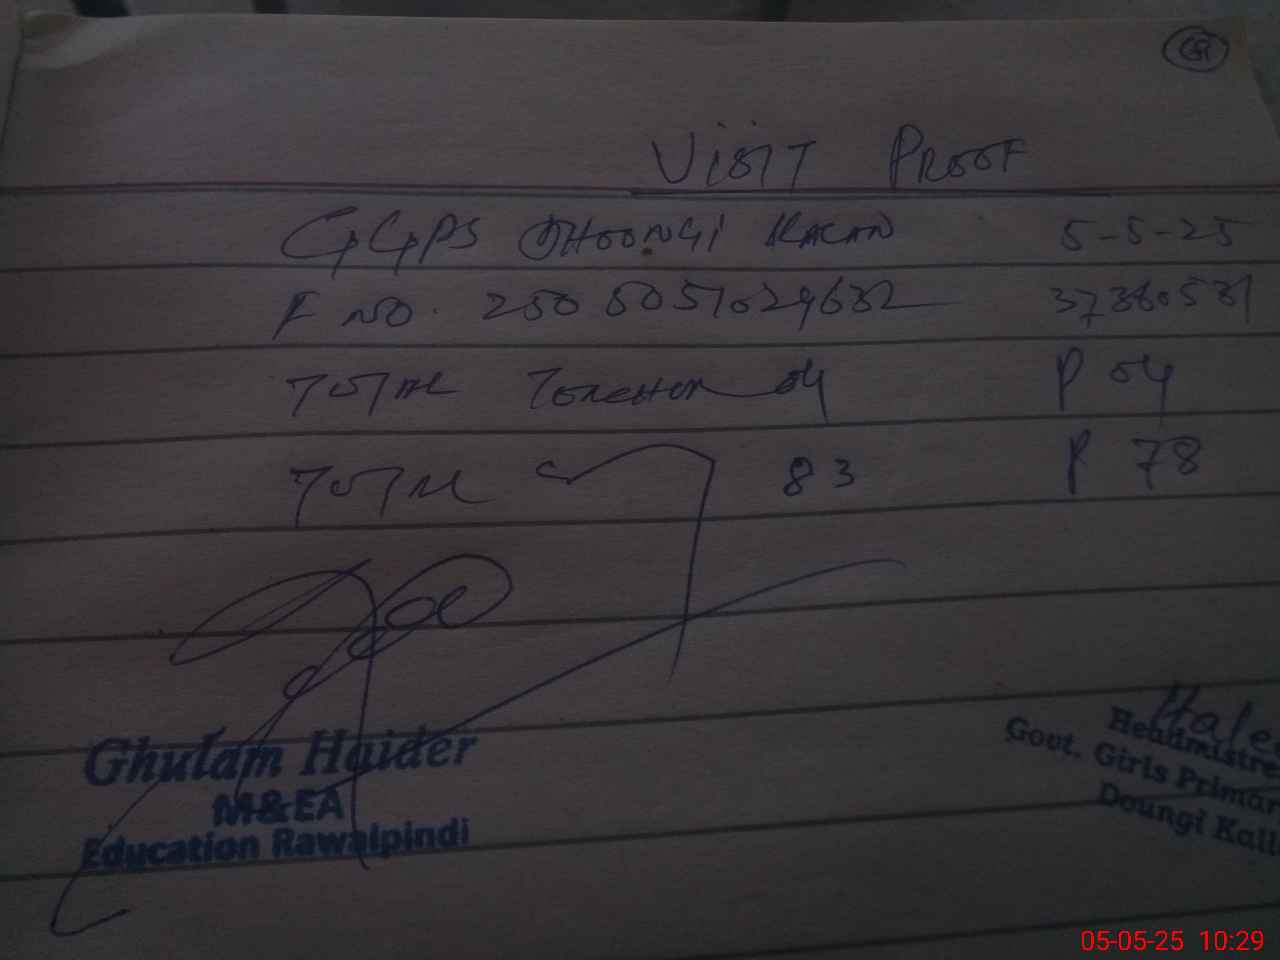 GR
VISIT PROOF
GGPS DHOONGI KALAN 5-5-25
F NO. 2505051029632 37360531
TOTAL TEACHER 04 P 04
TOTAL 83 P 78
Ghulam Haider
M&EA
Education Rawalpindi
Headmistre
Govt. Girls Primar
Doungi Kall
05-05-25 10:29